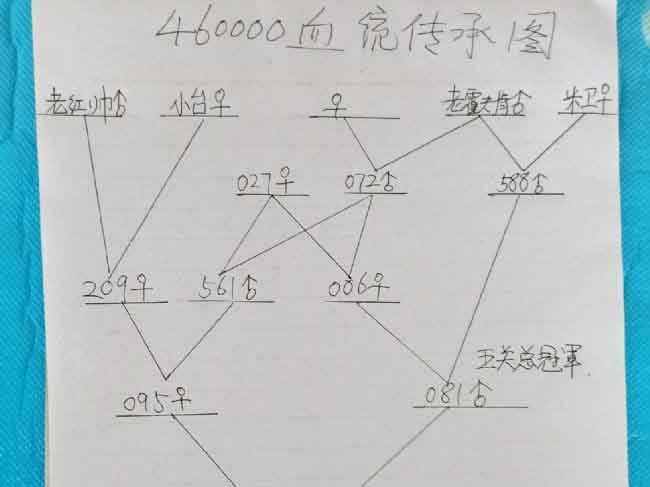 460000血统传承图
老红帅♂ 小台♀ ♀ 老霍夫肯♂ 米卫♀
027♀ 072♂ 588♂
209♀ 561♂ 006♀
五关总冠军
095♀ 081♂